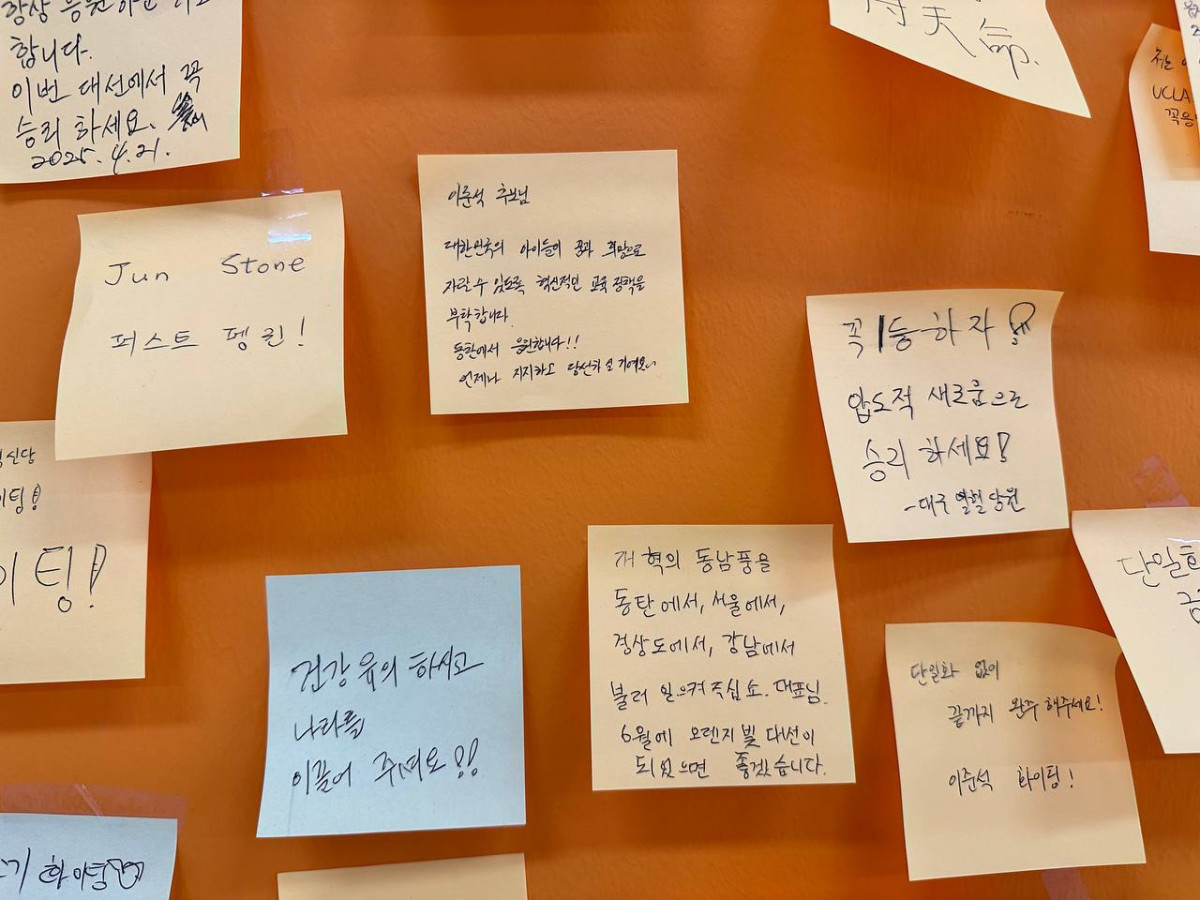 항상 응원하는
합니다.
이번 대선에서 꼭
승리 하세요.
2025. 4. 21.
待天命.
UCLA
Jun Stone
퍼스트 펭귄!
이준석 후보님
대한민국의 아이들이 꿈과 희망으로
자랄 수 있도록 혁신적인 교육 정책을
부탁합니다.
동탄에서 응원합니다!!
언제나 지지하고 당선하
꼭 1등하자
압도적 새로움으로
승리 하세요!
-대구 열혈당원
신당
이팅!
이팅!
건강 유의 하시고
나라를
이끌어 주세요!!
개혁의 동남풍을
동탄에서, 서울에서,
경상도에서, 강남에서
불러 일으켜 주십쇼. 대표님.
6월에 오렌지빛 대선이
되었으면 좋겠습니다.
단일화
단일화 없이
끝까지 완주 해주세요!
이준석 화이팅!
화이팅